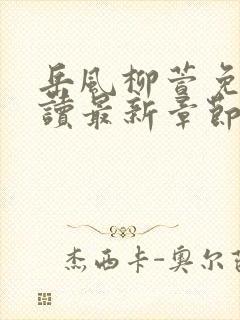 岳風柳萱免
讀最新章節
杰西卡-奥尔